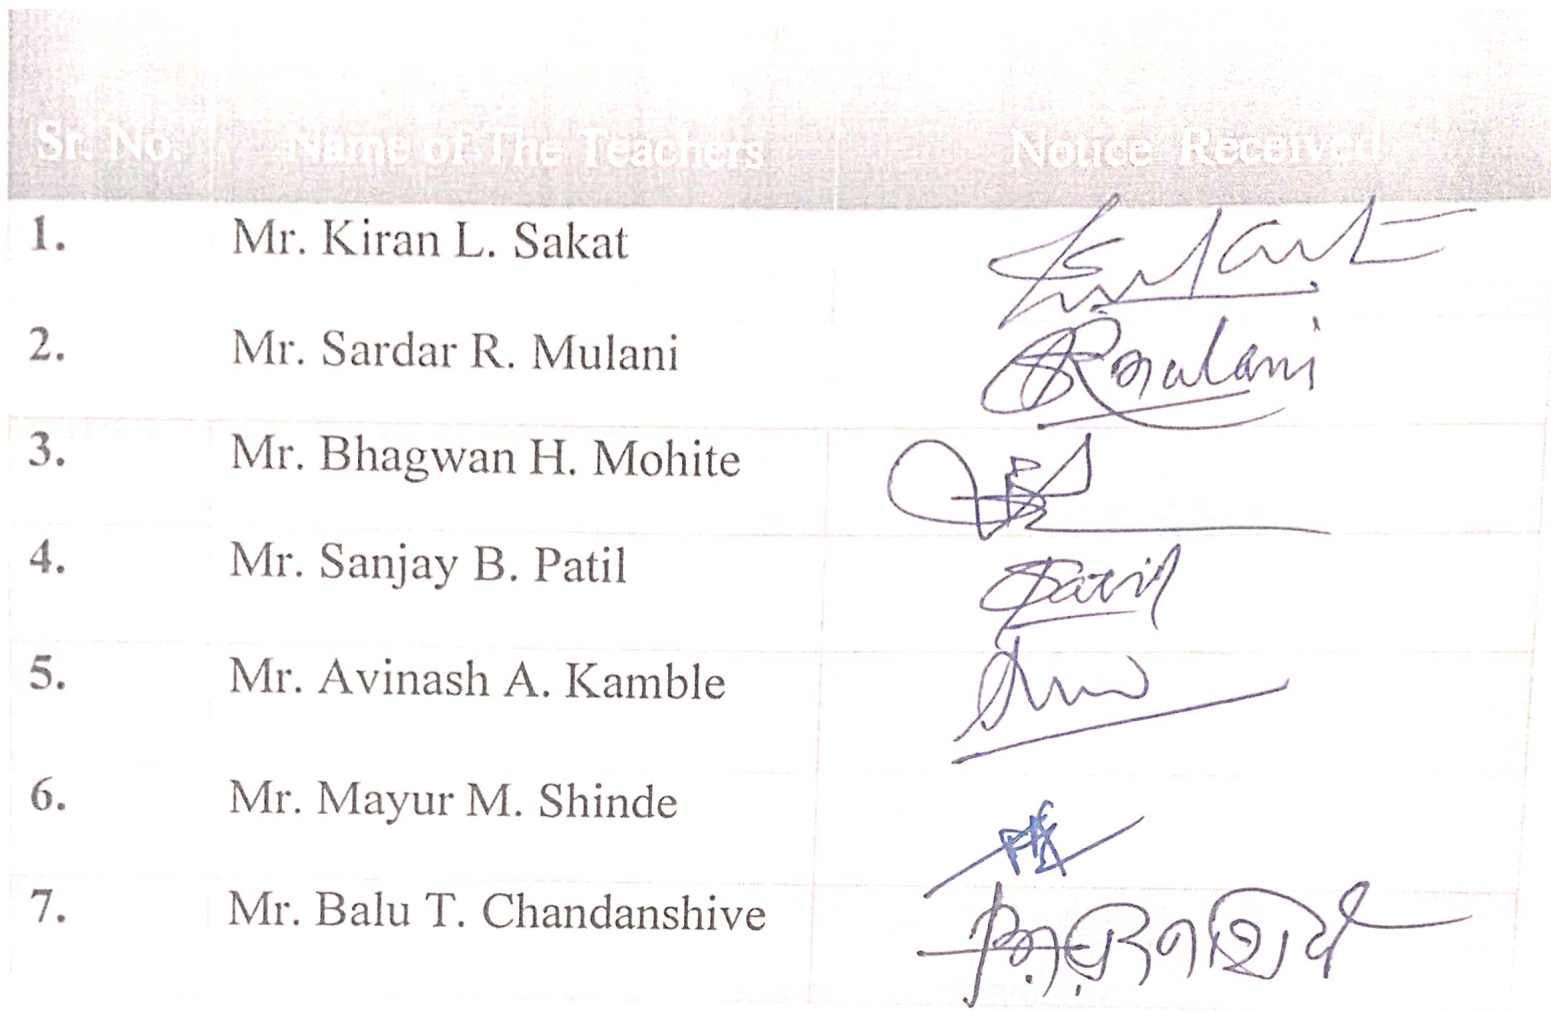 Sr. No. Name of The Teachers Notice Received
1. Mr. Kiran L. Sakat
2. Mr. Sardar R. Mulani SRMulani
3. Mr. Bhagwan H. Mohite
4. Mr. Sanjay B. Patil SPatil
5. Mr. Avinash A. Kamble
6. Mr. Mayur M. Shinde
7. Mr. Balu T. Chandanshive